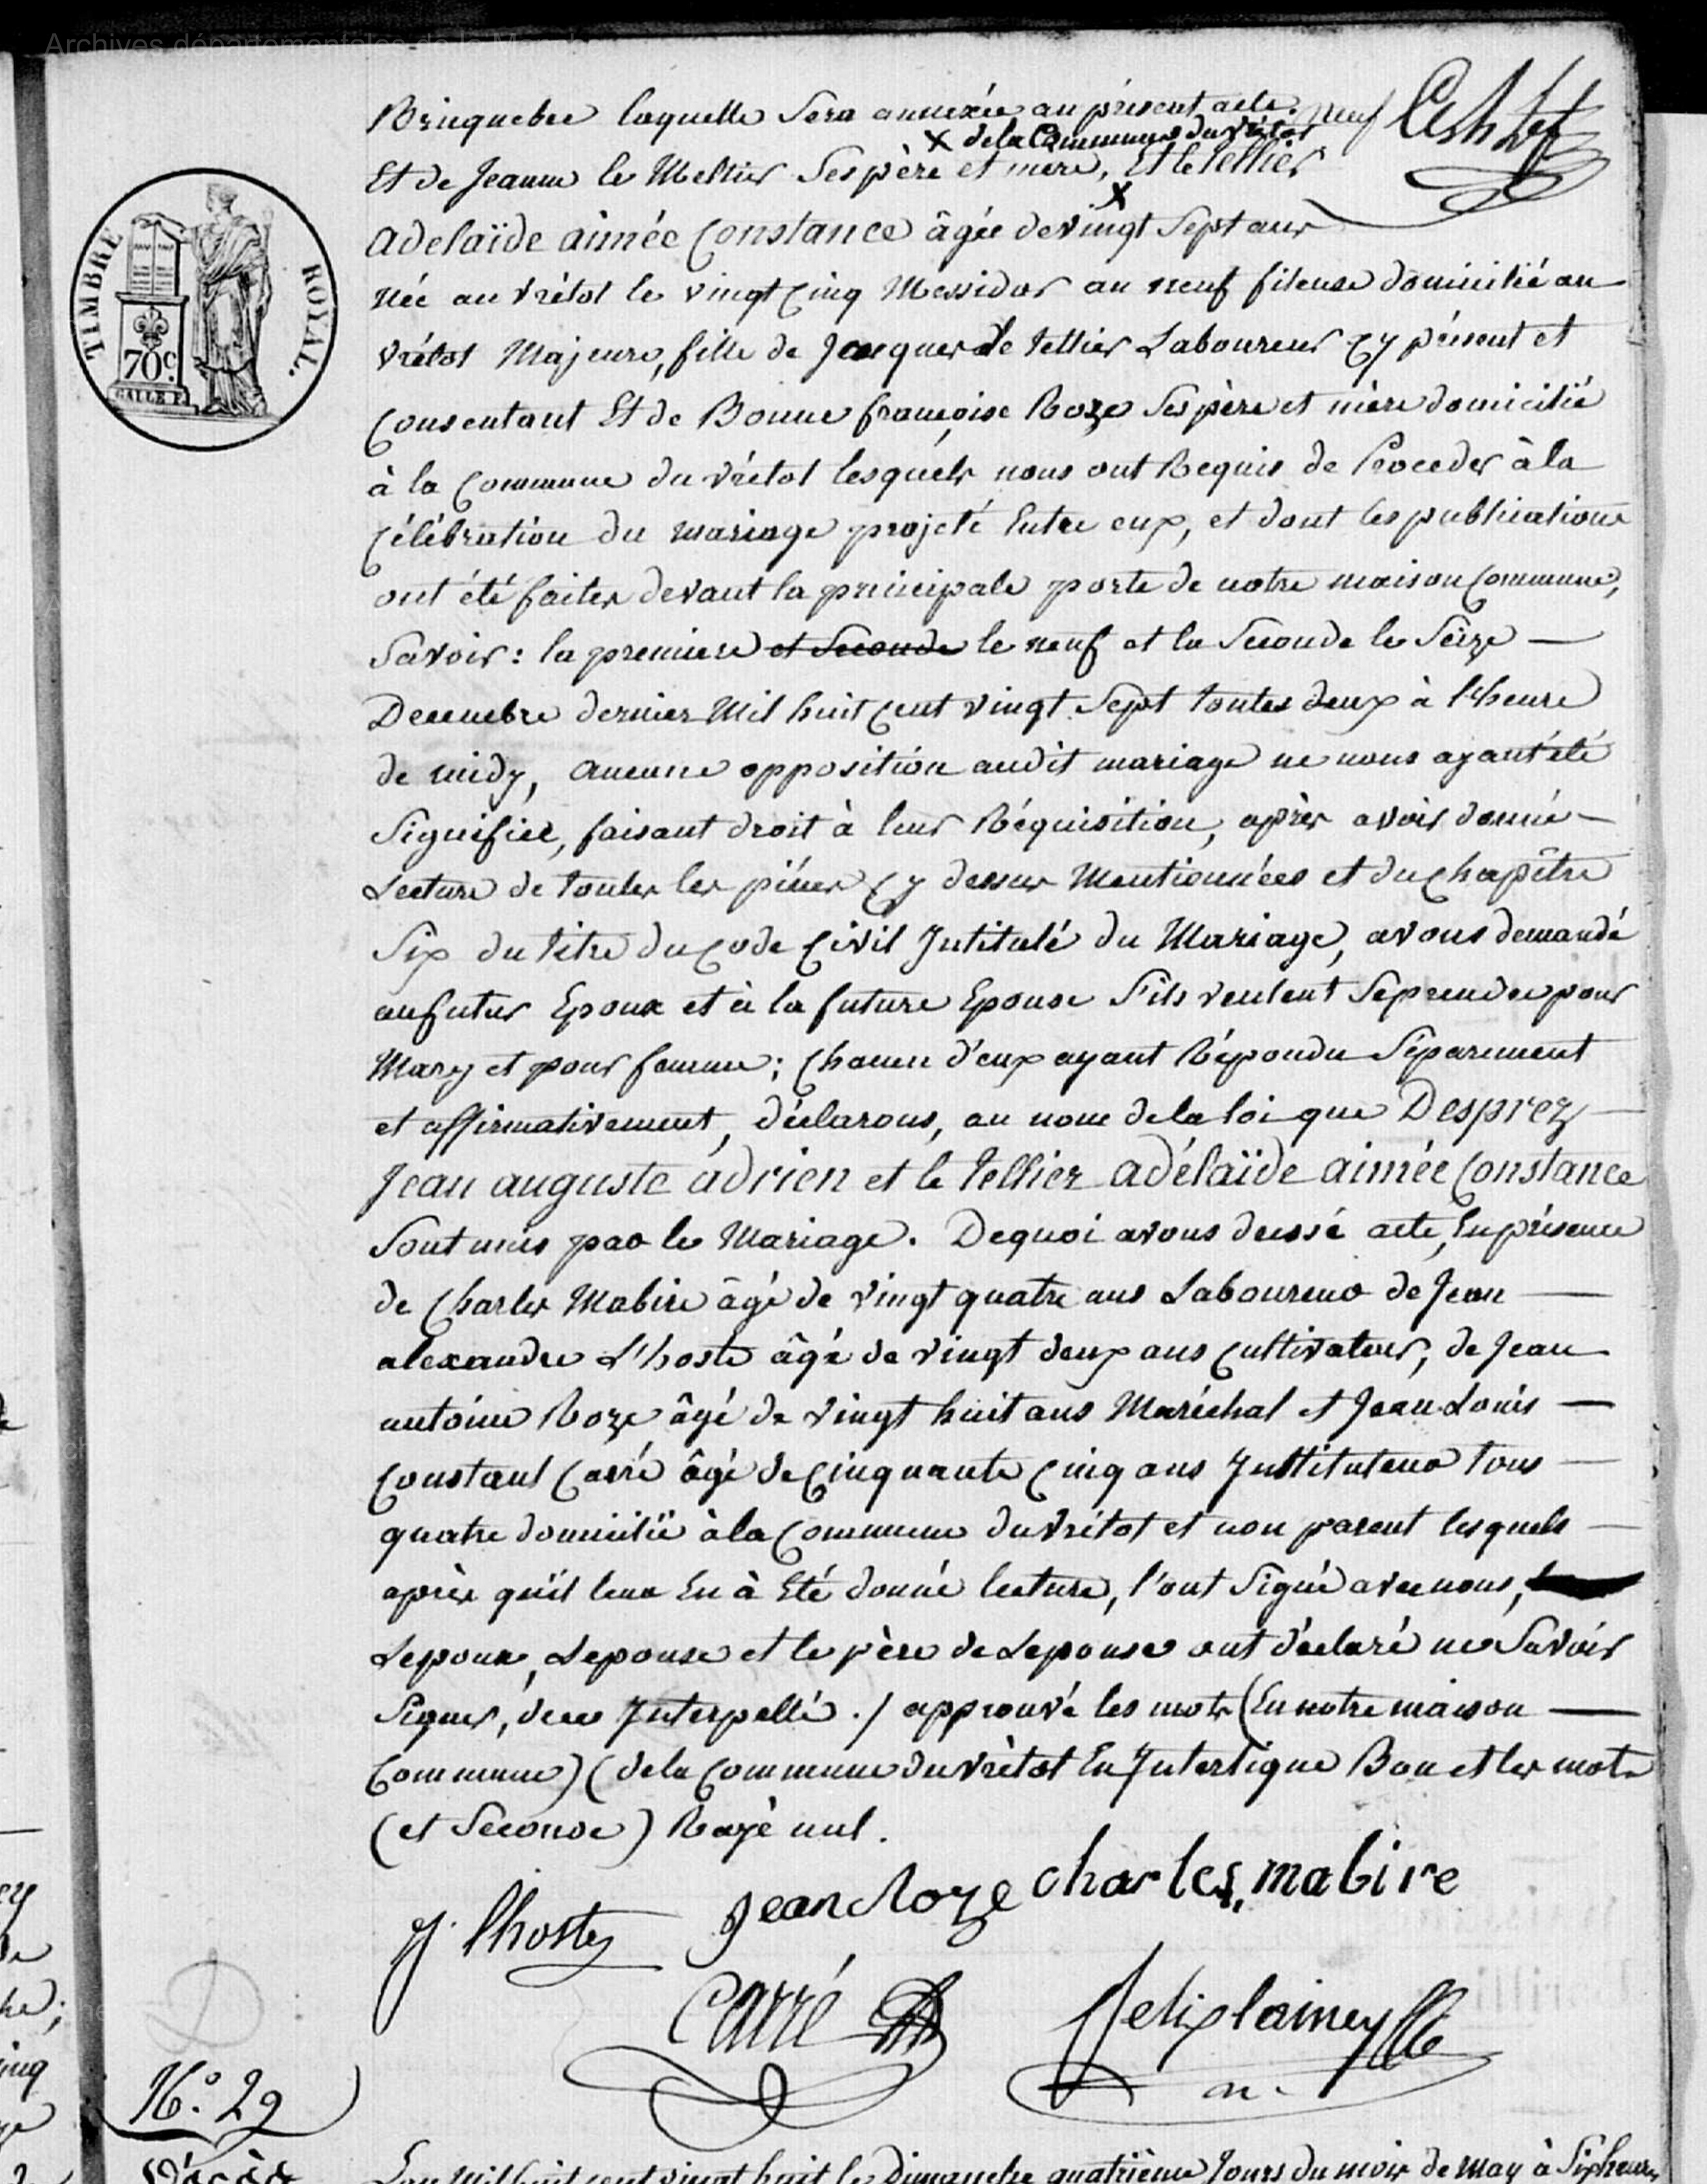 Archives départementales de la Manche
Bricquebec laquelle Sera annexée au présent acte. neuf
X de la Commune du Vrétot
Et de Jeanne le Mettier Ses père et mere, Et le tellier
X
adelaïde aimée Constance âgée de vingt Sept ans
née au Vrétot le vingt Cinq Messidor an neuf fileuse domicilié au
vrétot Majeure, fille de Jacques le tellier Laboureur Cy présent et
Consentant Et de Bonne françoise Roze Ses père et mère domicilié
à la Commune du vrétot lesquels nous ont Requis de Proceder à la
Célébration du mariage projeté Entre eux, et dont les publications
ont été faites devant la principale porte de notre maison Commune,
Savoir : la premiere et Seconde le neuf et la Seconde le Seize
Decembre dernier Mil huit Cent vingt Sept toutes deux à l'heure
de midy, aucune opposition audit mariage ne nous ayant été
Signifiée, faisant droit à leur Réquisition, après avoir donné
Lecture de toutes les pièces Cy dessus Mentionnées et du Chapître
Six du titre du Code Civil Intitulé du Mariage, avons demandé
au futur Epoux et à la future Epouse S'ils veulent Se prendre pour
Mary et pour femme ; Chacun d'eux ayant Répondu Séparement
et affirmativement, déclarons, au nom de la loi que Desprez
Jean auguste adrien et le tellier adélaïde aimée Constance
Sont unis par le Mariage. De quoi avons dressé acte, En présence
de Charles Mabire âgé de vingt quatre ans Laboureur de Jean
alexandre L'hoste âgé de vingt deux ans Cultivateur, de Jean
antoine Roze âgé de vingt huit ans Maréchal et Jean Louis
Constant Carré âgé de Cinquante Cinq ans Instituteur tous
quatre domicilié à la Commune du vrétot et non parent lesquels
après qu'il leur En à Eté donné lecture, l'ont Signé avec nous,
Lepoux, Lepouse et le père de Lepouse ont déclaré ne Savoir
Signer, de ce Interpellé ./ approuvé les mots (En notre maison
Commune) (de la Commune du vrétot En Interligne Bon et les mots
(et Seconde) Rayé nul.
J. lhoste
Jean Roze
Charles, mabire
Carré
N.° 29
TIMBRE ROYAL.
70 c.
L'an Mil huit cent vingt huit le Dimanche quatrième Jour du mois de May à Six heures